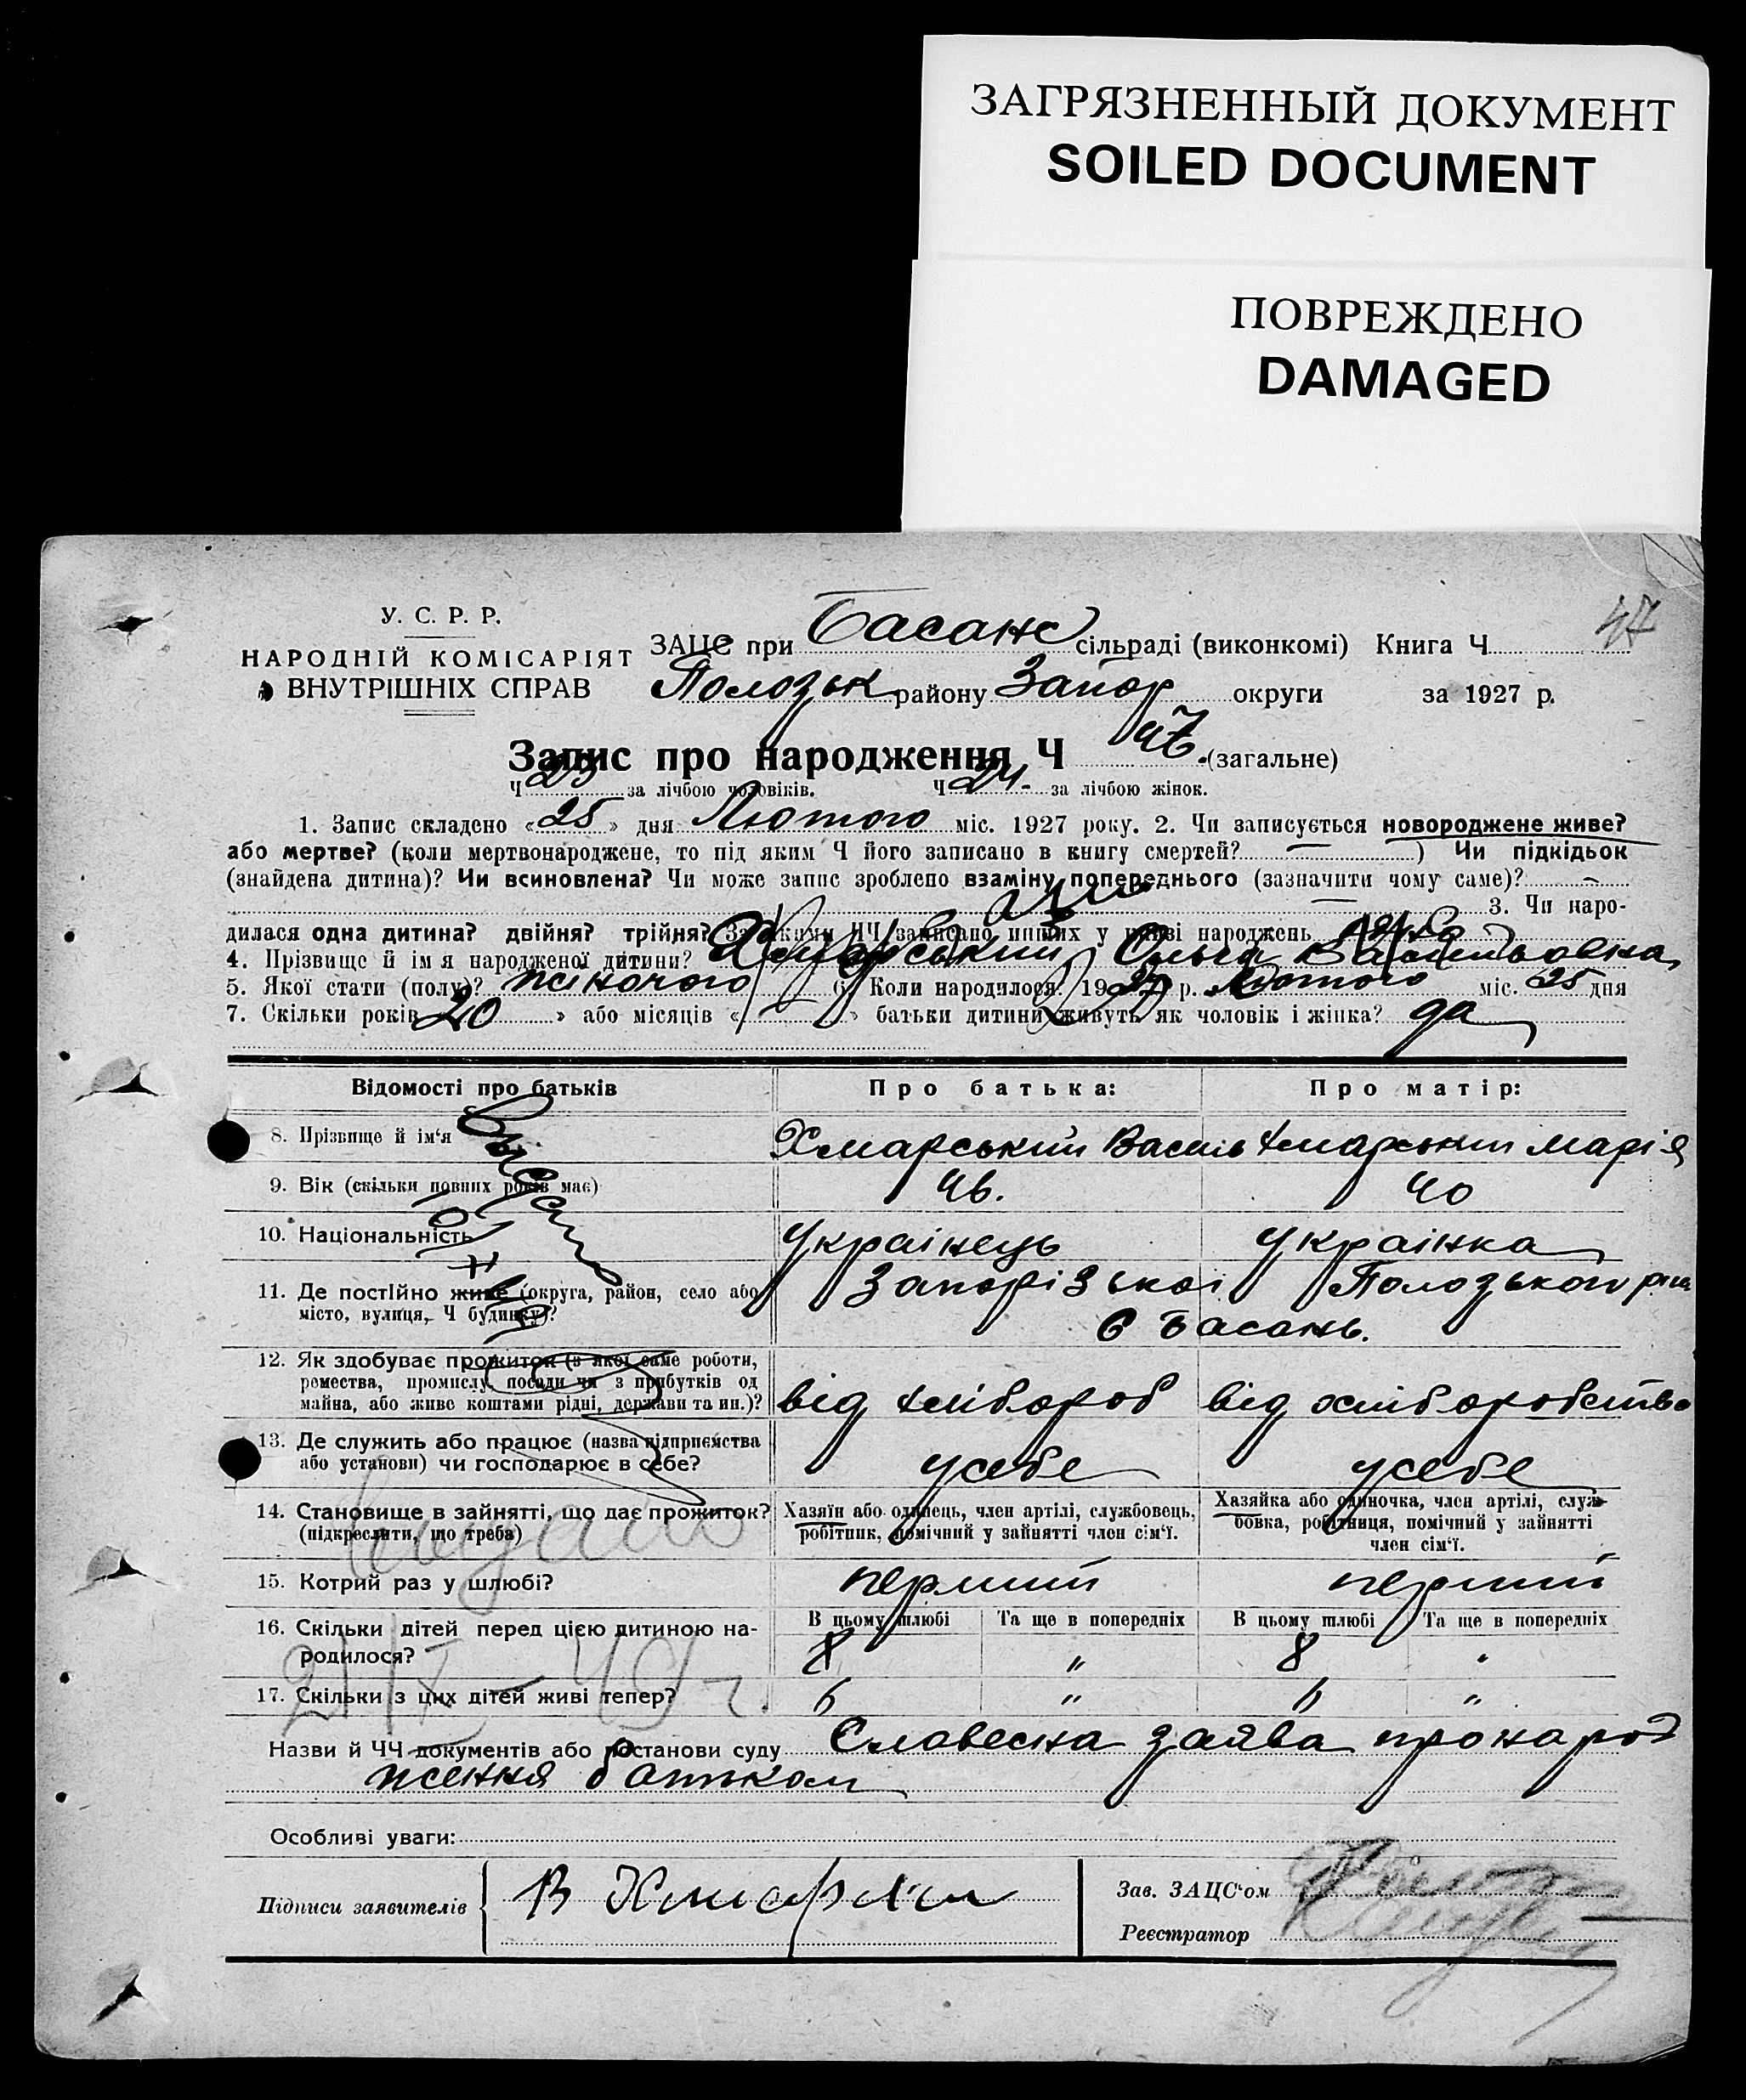 ЗАГРЯЗНЕННЫЙ ДОКУМЕНТ
SOILED DOCUMENT
ПОВРЕЖДЕНО
DAMAGED
У. С. Р. Р.
НАРОДНІЙ КОМІСАРІЯТ
ВНУТРІШНІХ СПРАВ
ЗАЦС при Басанс сільраді (виконкомі) Книга Ч 47
Полозьк району Запор округи за 1927 р.
Запис про народження Ч 47. (загальне)
Ч 23 за лічбою чоловіків. Ч 24. за лічбою жінок.
1. Запис складено «25» дня Лютого міс. 1927 року. 2. Чи записується новороджене живе?
або мертве? (коли мертвонароджене, то під яким Ч його записано в книгу смертей? — ) Чи підкідьок
(знайдена дитина)? Чи всиновлена? Чи може запис зроблено взаміну попереднього (зазначити чому саме)? —
— 3. Чи наро-
дилася одна дитина? двійня? трійня? За якими ЧЧ записано инших у книзі народжень
4. Прізвище й ім я народженої дитини? Хмарський Ольга Васильовна
5. Якої стати (полу)? жіночого 6. Коли народилося? 1927 р. Лютого міс. 25 дня
7. Скільки років 20 » або місяців « » батьки дитини живуть як чоловік і жінка? да
Відомості про батьків Про батька: Про матір:
8. Прізвище й ім‘я Хмарський Василь Хмарський Марія
9. Вік (скільки повних років має) 46. 40
10. Національність Українець Українка
11. Де постійно живе (округа, район, село або Запорізької Полозького рна
місто, вулиця, Ч будинку)? с Басань.
12. Як здобуває прожиток (з якої саме роботи,
ремества, промислу, посади чи з прибутків од
майна, або живе коштами рідні, держави та ин.)? від хлібороб від хліборобства
13. Де служить або працює (назва підприємства
або установи) чи господарює в себе? усебе усебе
14. Становище в зайнятті, що дає прожиток? Хазяїн або одинець, член артілі, службовець, Хазяйка або одиночка, член артілі, служ-
(підкреслити, що треба) робітник, помічний у зайнятті член сім‘ї. бовка, робітниця, помічний у зайнятті
член сім‘ї.
Видано
15. Котрий раз у шлюбі? перший перший
16. Скільки дітей перед цією дитиною на- В цьому шлюбі Та ще в попередніх В цьому шлюбі Та ще в попередніх
родилося? 8 " 8 "
17. Скільки з цих дітей живі тепер? 6 " 6 "
Назви й ЧЧ документів або постанови суду Словесна заява про народ
ження батьком
Особливі уваги:
Підписи заявителів В Хмарски Зав. ЗАЦС‘ом
Реєстратор